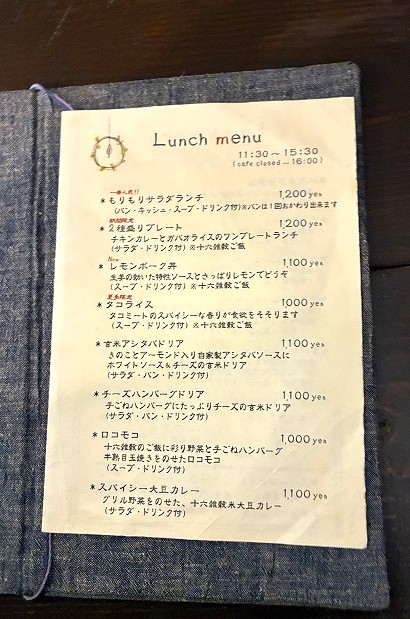 Lunch menu
11:30～15:30
(cafe closed―16:00)
一番人気!!
＊もりもりサラダランチ 1,200yen
(パン・キッシュ・スープ・ドリンク付)※パンは1回おかわり出来ます
期間限定
＊2種盛りプレート 1,200yen
チキンカレーとガパオライスのワンプレートランチ
(サラダ・ドリンク付) ※十六雑穀ご飯
New
＊レモンポーク丼 1,100yen
生姜の効いた特性ソースとさっぱりレモンでどうぞ
(スープ・ドリンク付) ※十六雑穀ご飯
夏季限定
＊タコライス 1,000yen
タコミートのスパイシーな香りが食欲をそそります
(スープ・ドリンク付) ※十六雑穀ご飯
＊玄米アシタバドリア 1,100yen
きのことアーモンド入り自家製アシタバソースに
ホワイトソース&チーズの玄米ドリア
(サラダ・パン・ドリンク付)
＊チーズハンバーグドリア 1,100yen
手ごねハンバーグにたっぷりチーズの玄米ドリア
(サラダ・パン・ドリンク付)
＊ロコモコ 1,000yen
十六雑穀のご飯に彩り野菜と手ごねハンバーグ
半熟目玉焼きをのせたロコモコ
(スープ・ドリンク付)
＊スパイシー大豆カレー 1,100yen
グリル野菜をのせた、十六雑穀米大豆カレー
(サラダ・ドリンク付)